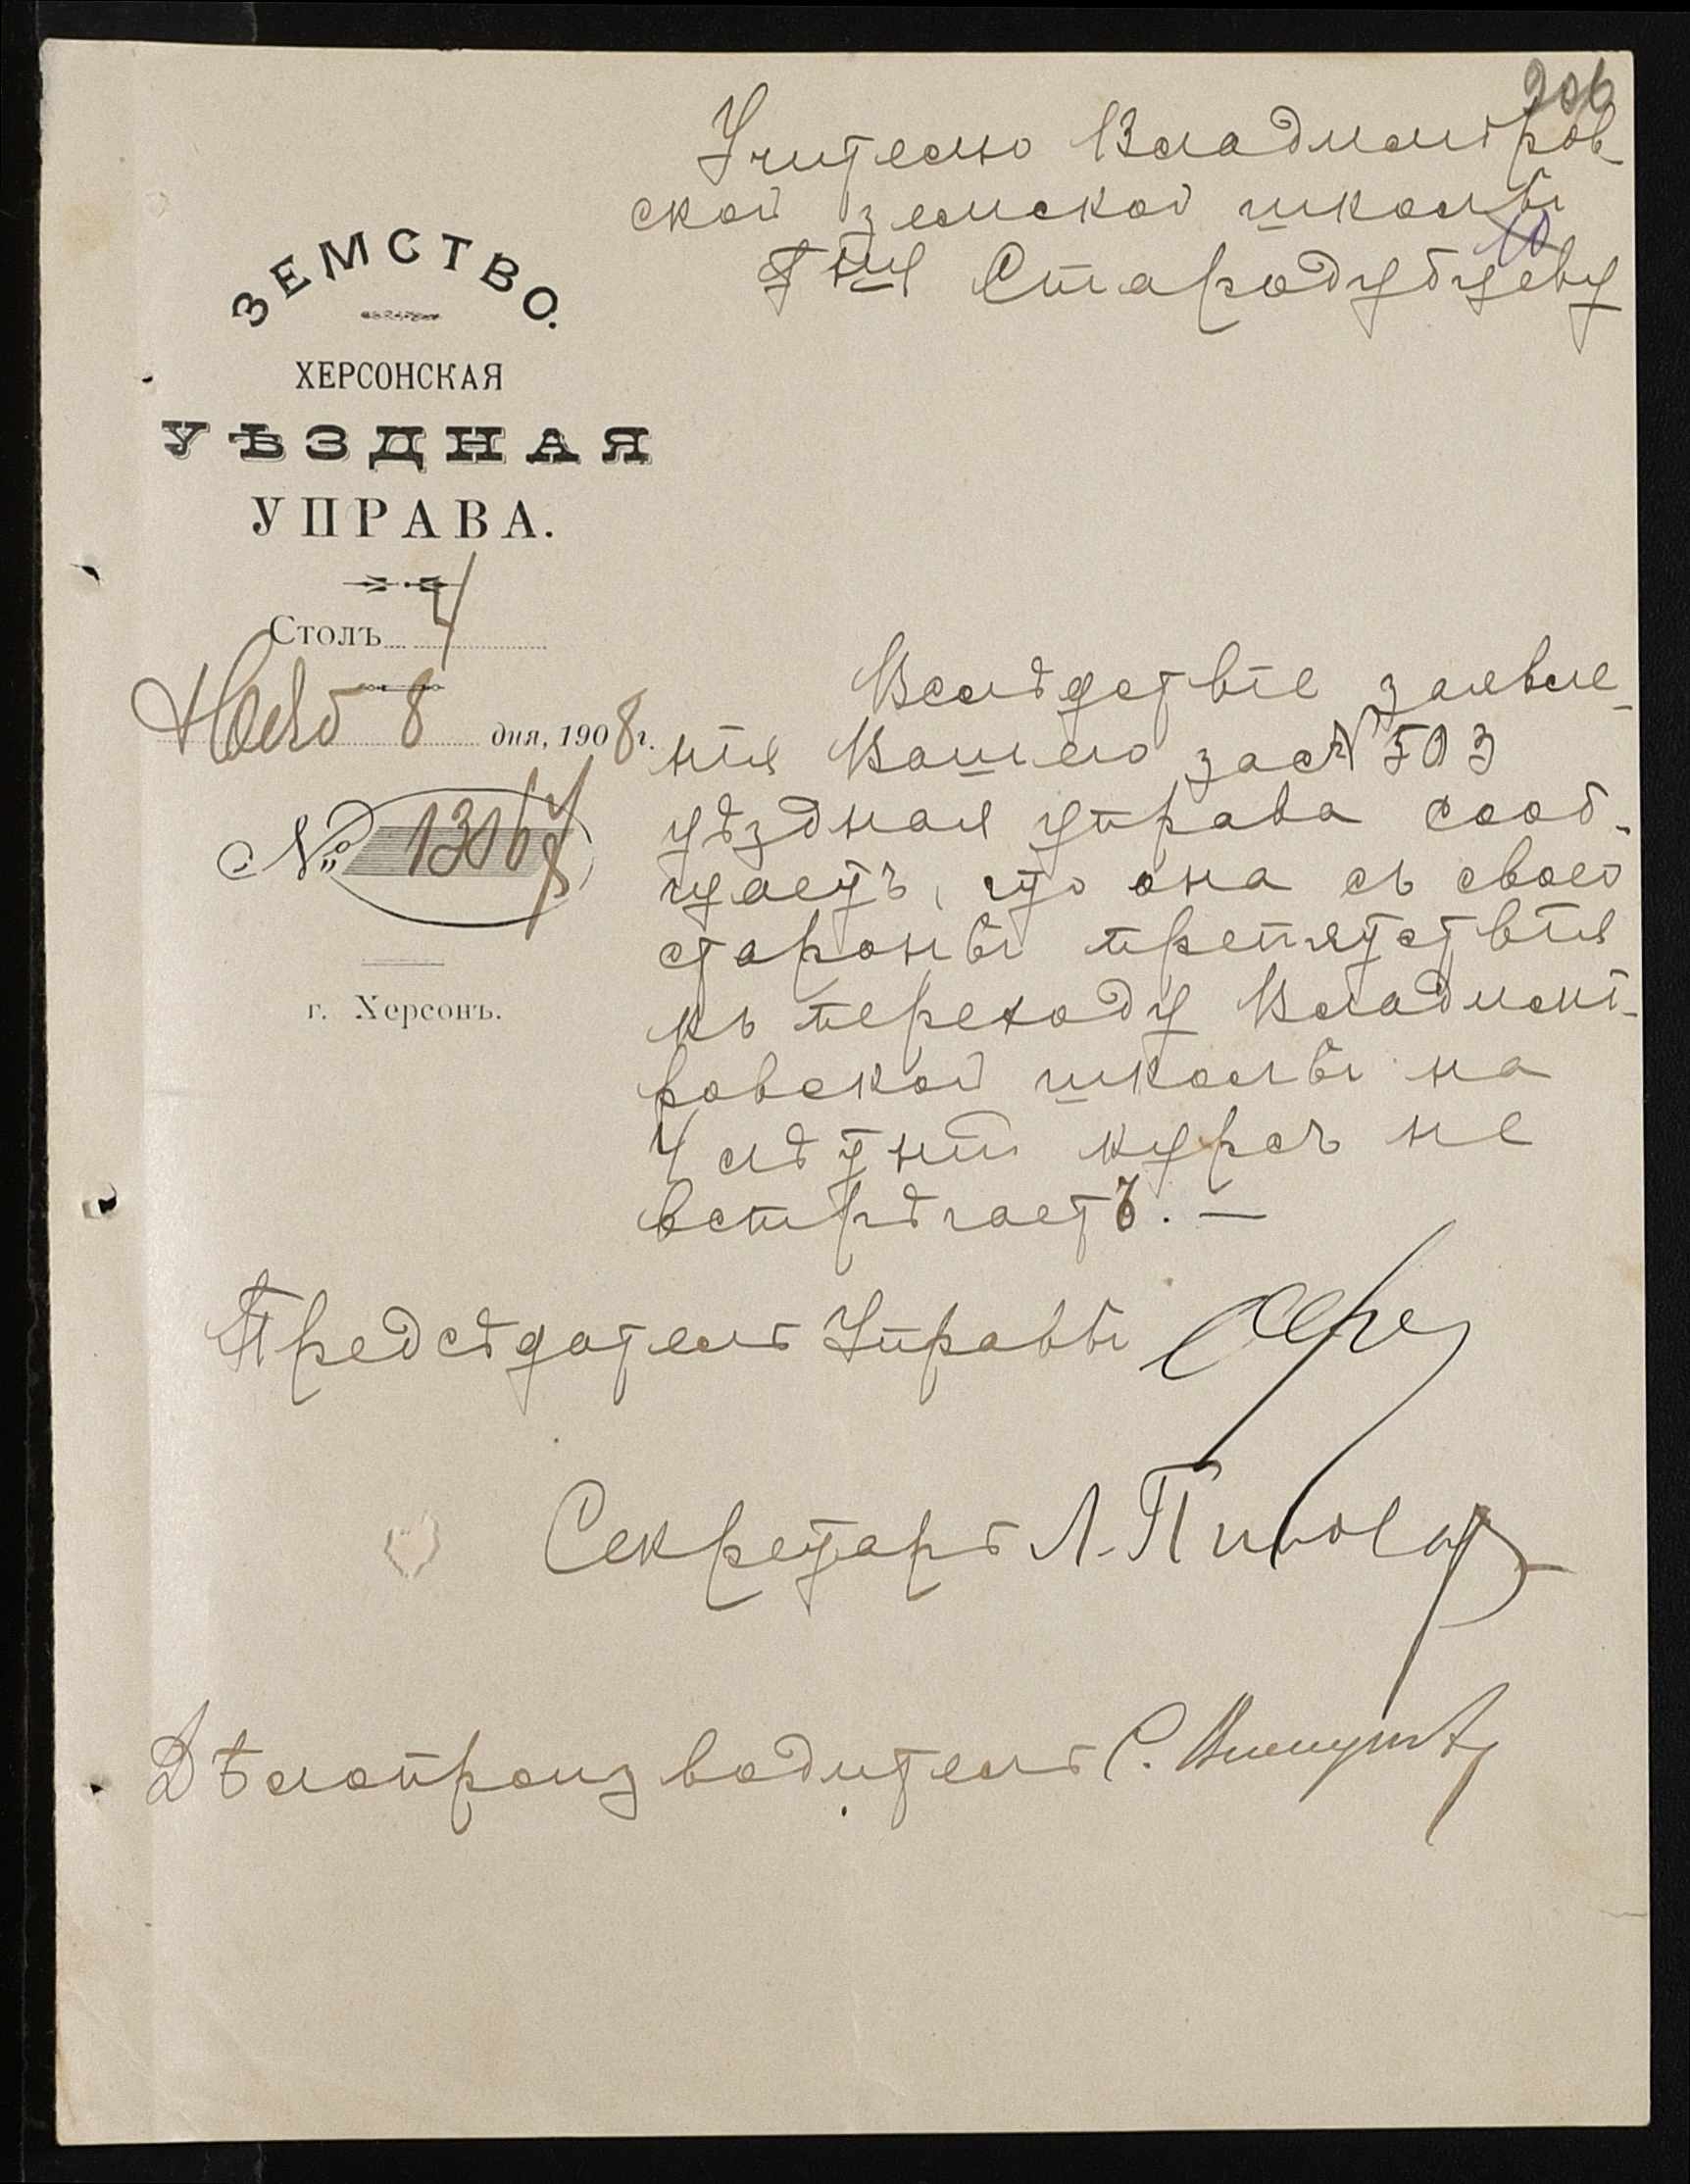 206
Учителю Владимiров-
ской земской школы
10
Г-ну Стародубцеву
ЗЕМСТВО.
ХЕРСОНСКАЯ
УѢЗДНАЯ
УПРАВА.
Столъ 4
Нояб 8 дня, 1908 г.
№ 13167
г. Херсонъ.
Вслѣдствiе заявле-
нiя Вашего за № 503
уѣздная управа сооб-
щаетъ, что она съ своей
стороны препятствiя
къ переходу Владимi-
ровской школы на
4 лѣтнiй курсъ не
встрѣчаетъ. —
Предсѣдатель Управы
Секретарь Л. Пивовар
Дѣлопроизводитель С.